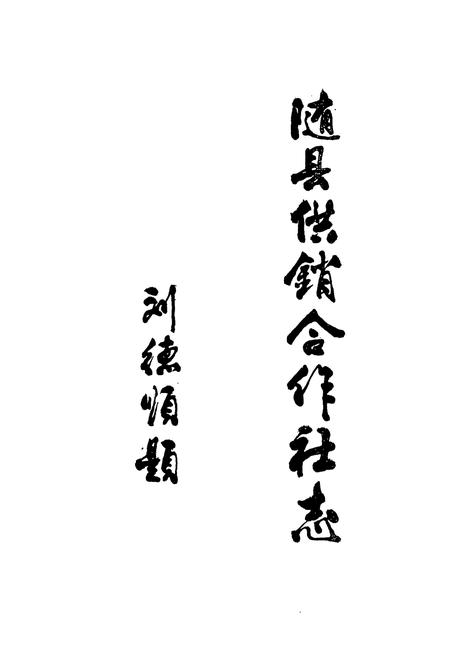 随县供銷合作社志
刘德順题